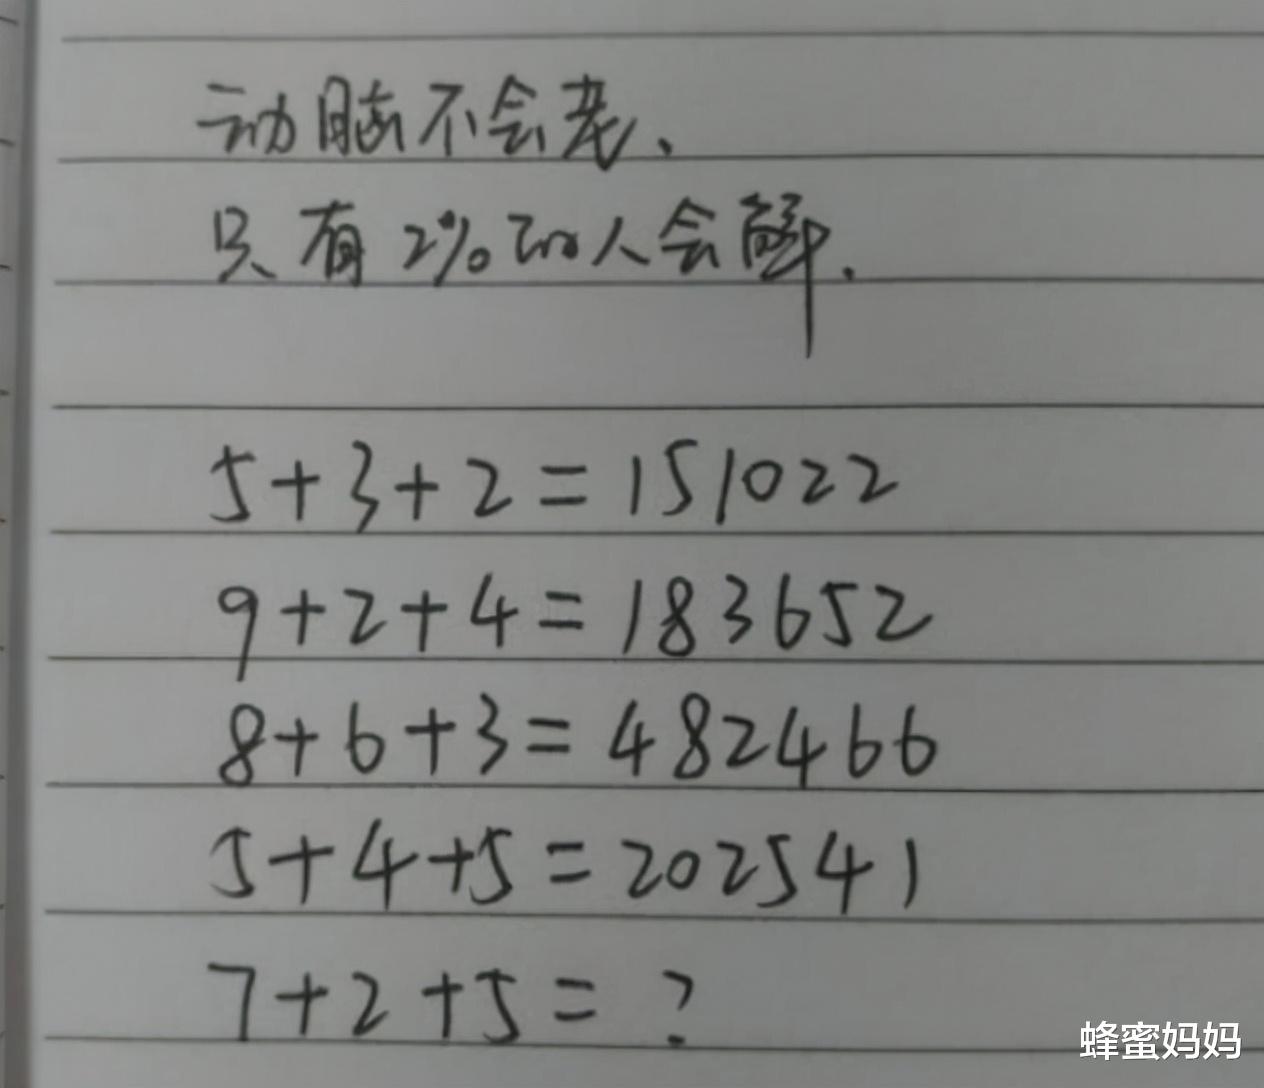 动脑不会老、
只有2%的人会解.
5+3+2=151022
9+2+4=183652
8+6+3=482466
5+4+5=202541
7+2+5=?
蜂蜜妈妈